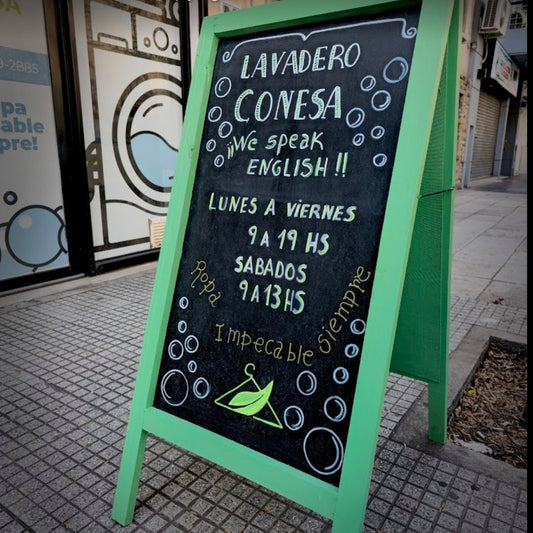 9-2885
LAVADERO
CONESA
¡¡We speak
ENGLISH!!
LUNES A VIERNES
9 A 19 HS
SABADOS
9 A 13 HS
Ropa
Impecable
siempre